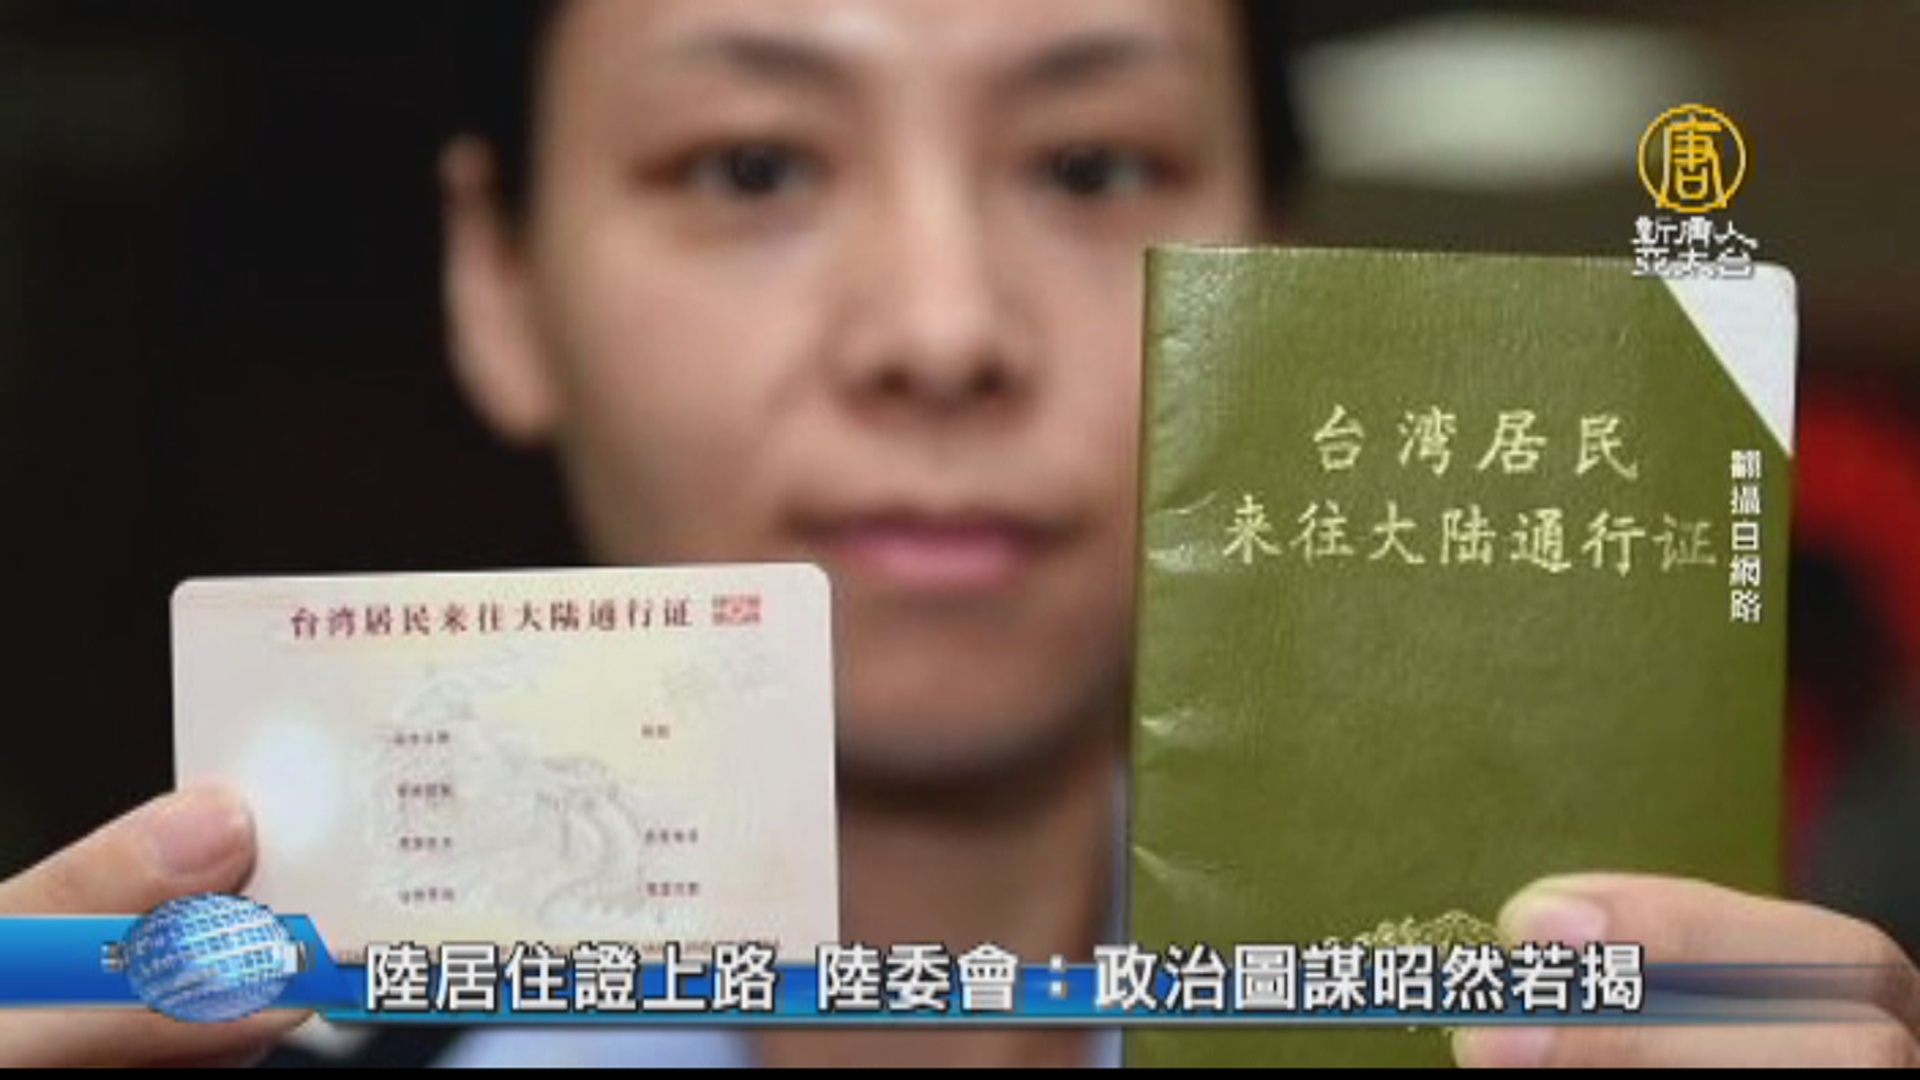 唐
新唐人
亞太台
台湾居民
来往大陆通行证
台湾居民来往大陆通行证
翻攝自網路
陸居住證上路 陸委會：政治圖謀昭然若揭